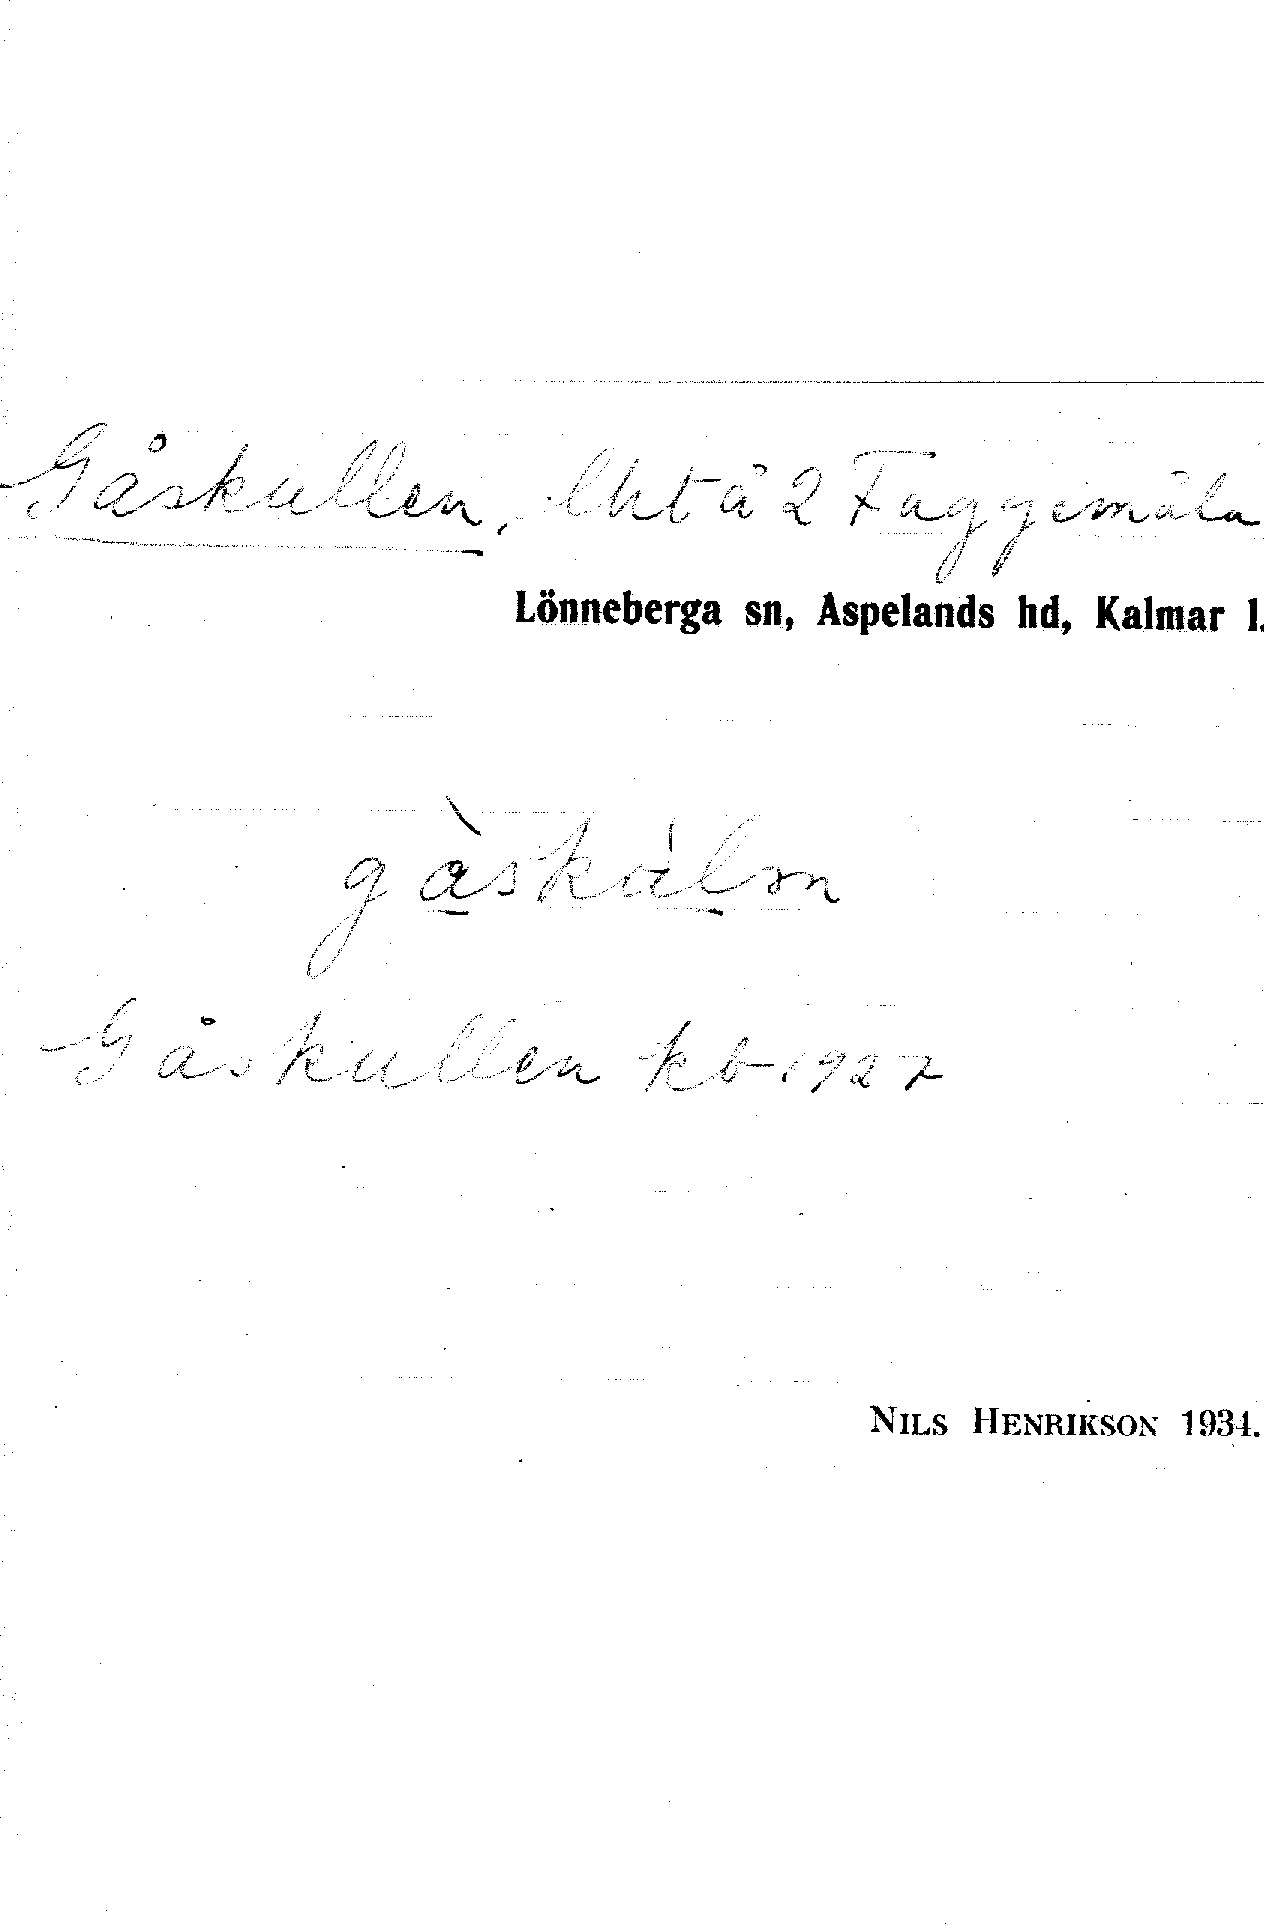 Gåskullen, lht å 2 Faggemåla
Lönneberga sn, Aspelands hd, Kalmar l.
Gåskullen kb 1927
NILS HENRIKSON 1934.